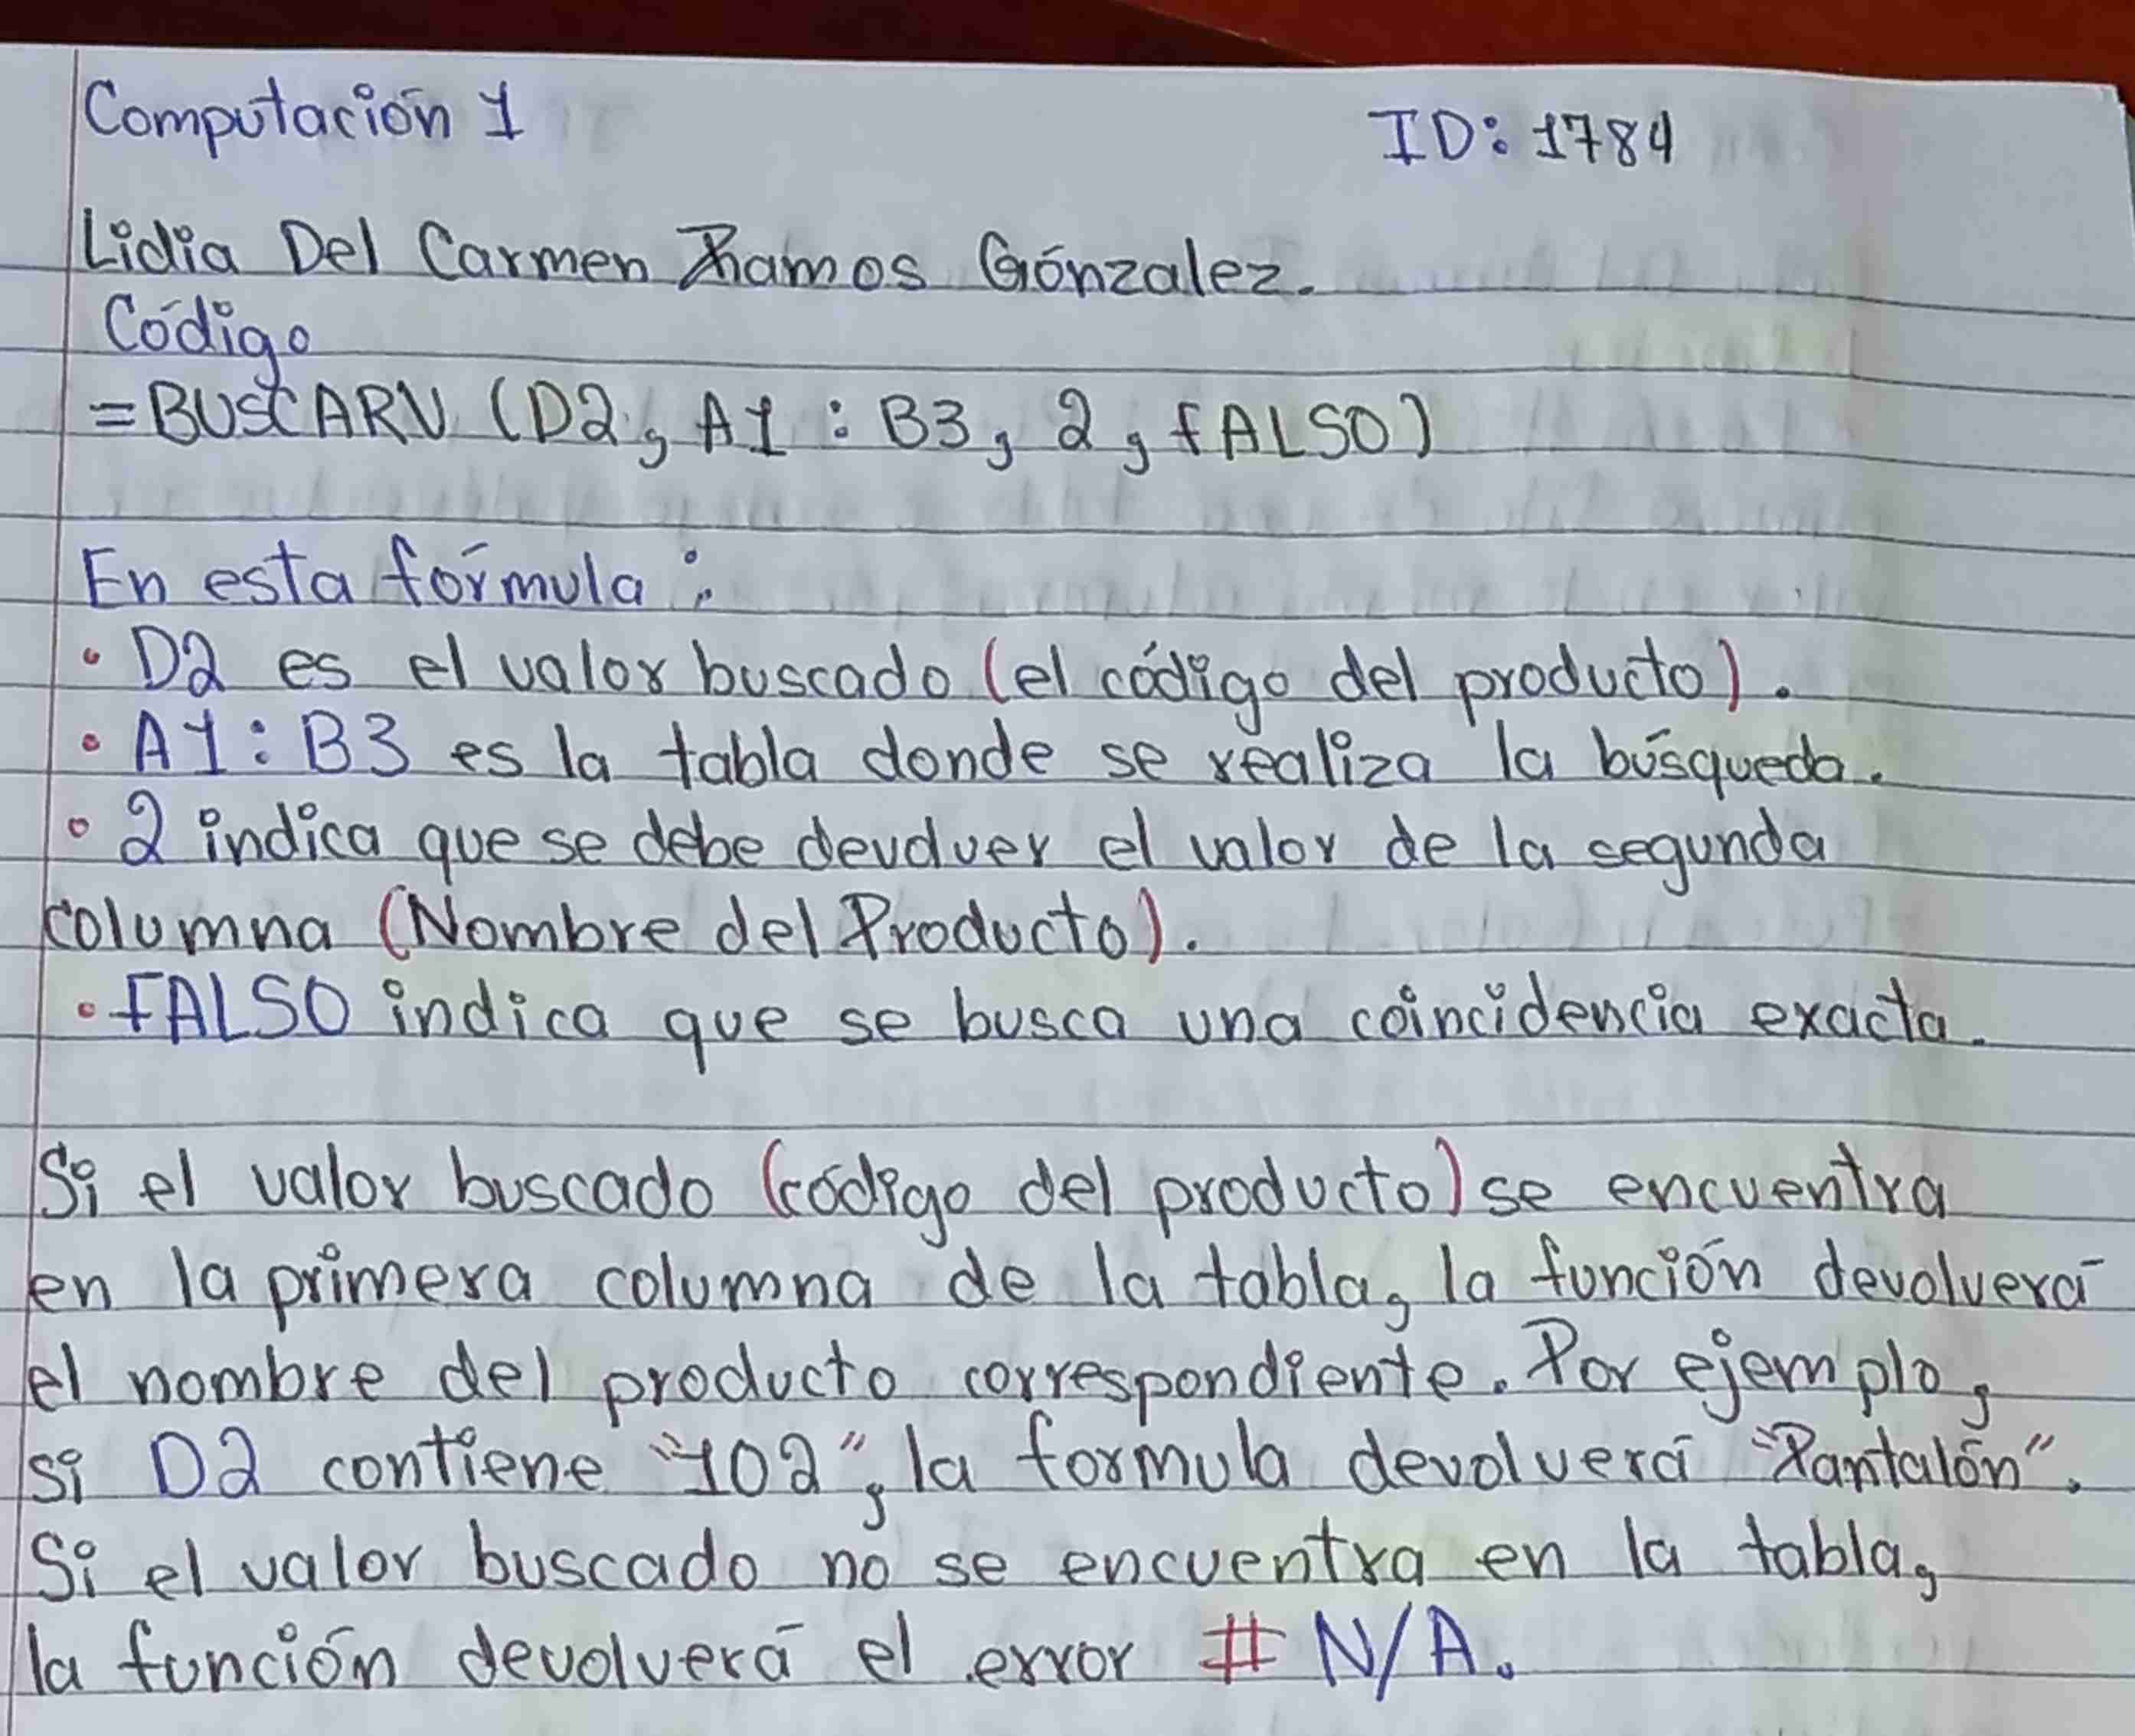 Computación 1 ID: 1784
Lidia Del Carmen Ramos Gónzalez.
Código
=BUSCARV (D2, A1 : B3, 2, fALSO)
En esta fórmula :
• D2 es el valor buscado (el código del producto).
• A1 : B3 es la tabla donde se realiza la búsqueda.
• 2 indica que se debe devolver el valor de la segunda
columna (Nombre del Producto).
• FALSO indica que se busca una coincidencia exacta.
Si el valor buscado (código del producto) se encuentra
en la primera columna de la tabla, la función devolverá
el nombre del producto correspondiente. Por ejemplo,
si D2 contiene "102", la formula devolverá "Pantalón".
Si el valor buscado no se encuentra en la tabla,
la función devolverá el error # N/A.